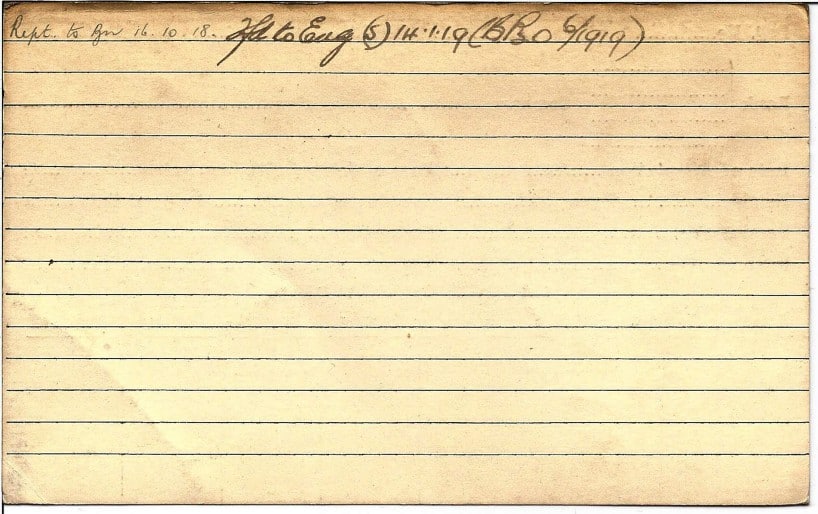 Rept. to Bn 16.10.18. Tfd to Eng (S) 14.1.19 (BPBO 6/1919)